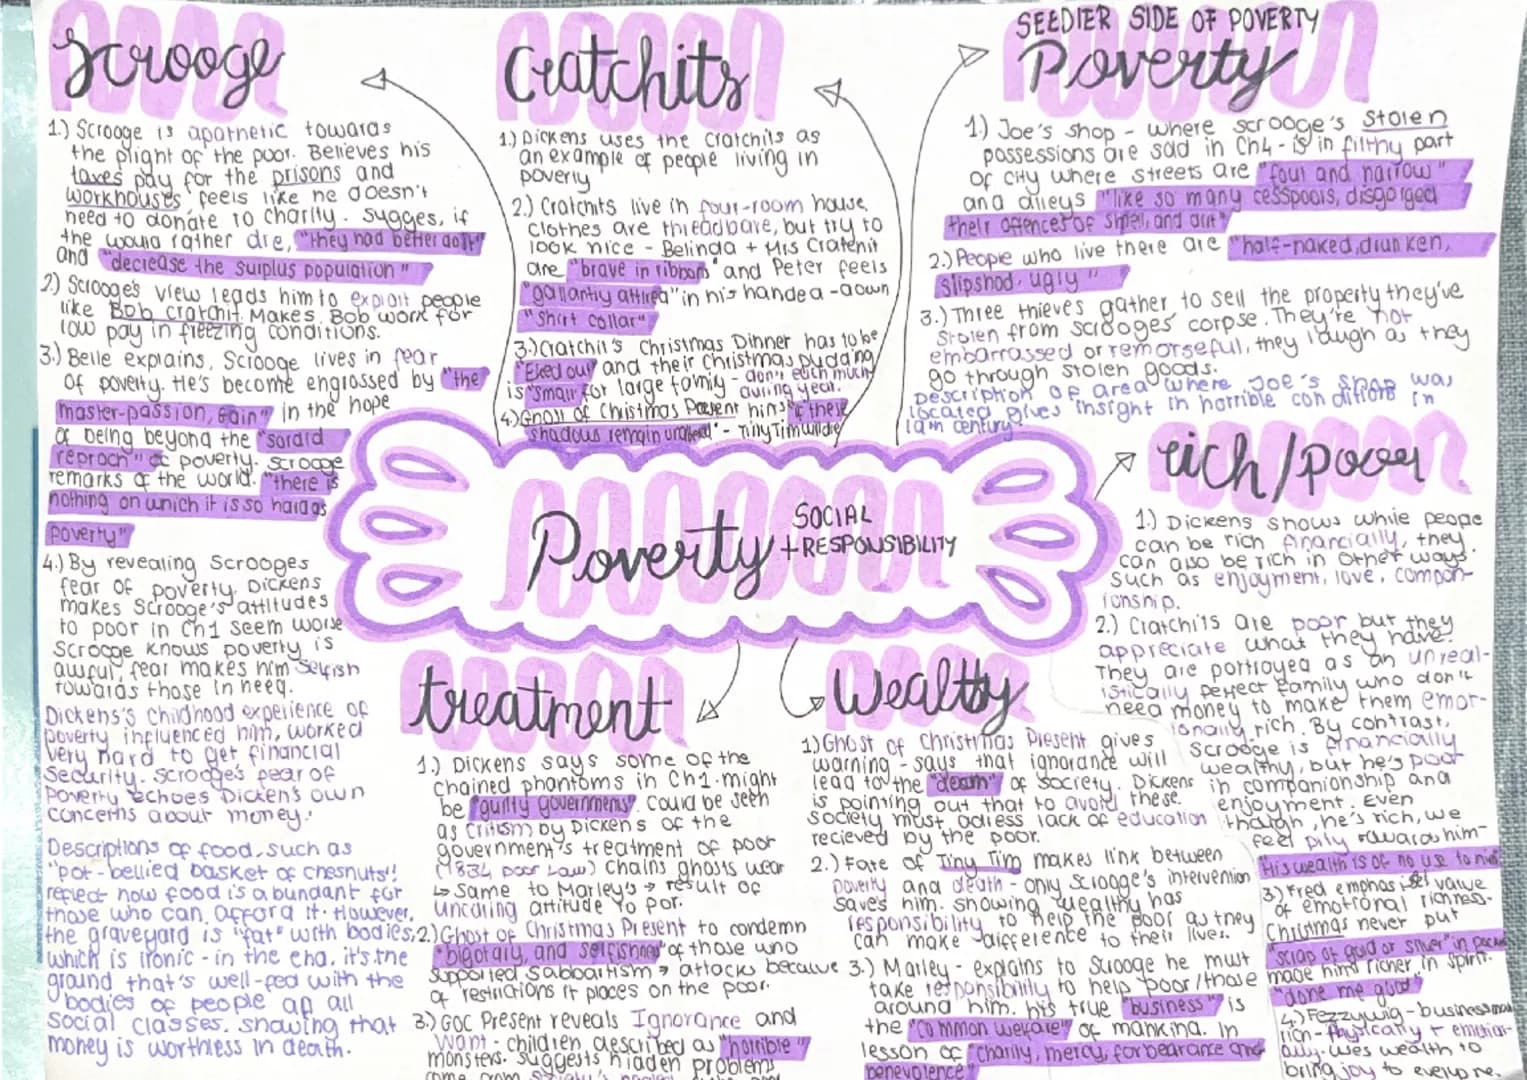 Scrooge
1.) Scrooge is apathetic towards
the plight of the poor. Believes his
taxes pay for the prisons and
workhouses feels like he doesn't
need to donate to charity. Sugges, if
the would rather die, "they had better do it"
and "decrease the surplus population"
2.) Scrooge's view leads him to exploit people
like Bob Cratchit. Makes Bob work for
low pay in freezing conditions.
3.) Belle explains, Scrooge lives in fear
of poverty. He's become engrossed by "the
master-passion, Gain" in the hope
of being beyond the "sordid
reproch" of poverty. Scrooge
remarks of the world. "there is
nothing on which it is so hard as
poverty"
4.) By revealing Scrooges
fear of poverty, Dickens
makes Scrooge's attitudes
to poor in Ch1 seem worse
Scrooge knows poverty is
awful, fear makes him selfish
towards those in need.
Dickens's childhood experience of
poverty influenced him, worked
very hard to get financial
security. Scrooge's fear of
Poverty echoes Dicken's own
concerns about money.
Descriptions of food, such as
"pot-bellied basket of chesnuts"
reflect how food is abundant for
those who can afford it. However,
the graveyard is "fat" with bodies,
which is ironic - in the end, it's the
ground that's well-fed with the
bodies of people an all
social classes. showing that
money is worthless in death.
Cratchits
1.) Dickens uses the Cratchits as
an example of people living in
poverty
2.) Cratchits live in four-room house,
clothes are threadbare, but try to
look nice - Belinda + Mrs Cratchit
are "brave in ribbons" and Peter feels
"gallantly attired" in his handed-down
"Shirt collar"
3.) Cratchit's Christmas Dinner has to be
"Eked out" and their Christmas pudding
is "small" for large family - don't eat much
during year.
4.) Ghost of Christmas Present hints "if these
shadows remain unaltered" - Tiny Tim will die
SEEDIER SIDE OF POVERTY
Poverty
1.) Joe's shop - where scrooge's stolen
possessions are sold in Ch4 - is in filthy part
of city where streets are "foul and narrow"
and alleys "like so many cesspools, disgorged
their offences of smell, and dirt"
2.) People who live there are "half-naked, drunken,
slipshod, ugly"
3.) Three thieves gather to sell the property they've
stolen from Scrooges corpse. They're not
embarrassed or remorseful, they laugh as they
go through stolen goods.
description of area where Joe's shop was
located gives insight in horrible conditions in
19th century
Poverty + SOCIAL RESPONSIBILITY
rich/poor
1.) Dickens shows while people
can be rich financially, they
can also be rich in other ways.
Such as enjoyment, love, compan-
ionship.
2.) Cratchits are poor but they
appreciate what they have.
They are portrayed as an unreal-
istically perfect family who don't
need money to make them emot-
ionally rich. By contrast,
Scrooge is financially
wealthy, but he's poor
in companionship and
enjoyment. Even
though, he's rich, we
feel pity towards him-
"His wealth is of no use to him"
3.) Fred emphasises value
of emotional richness.
Christmas never put
"scrap of gold or silver" in pocket
made him richer in spirit.
"done me good"
4.) Fezzywig - businessman
rich - physically + emotion-
ally. Uses wealth to
bring joy to everyone.
treatment
1.) Dickens says some of the
chained phantoms in Ch1 might
be "guilty governments". Could be seen
as critism by Dickens of the
government's treatment of poor
(1834 poor Law) Chains ghosts wear
↳ Same to Marley's → result of
uncaring attitude to por.
2.) Ghost of Christmas Present to condemn
"bigotary, and selfishness" of those who
supported Sabbartism → attacks because
of restrictions it places on the poor.
3.) GOC Present reveals Ignorance and
Want - children described as "horrible"
monsters. suggests hidden problems
come from society's neglect
Wealthy
1) Ghost of Christmas Present gives
warning - says that ignorance will
lead to the "doom" of society. Dickens
is pointing out that to avoid these.
society must adress lack of education
recieved by the poor.
2.) Fate of Tiny Tim makes link between
poverty and death - only Scrooge's intervention
saves him. showing wealthy has
responsibility to help the poor as they
can make difference to their lives.
3.) Marley - explains to Scrooge he must
take responsibility to help poor/those
around him. his true "business" is
the "common welfare" of mankind. In
lesson of "charity, mercy, forbearance and
benevolence"